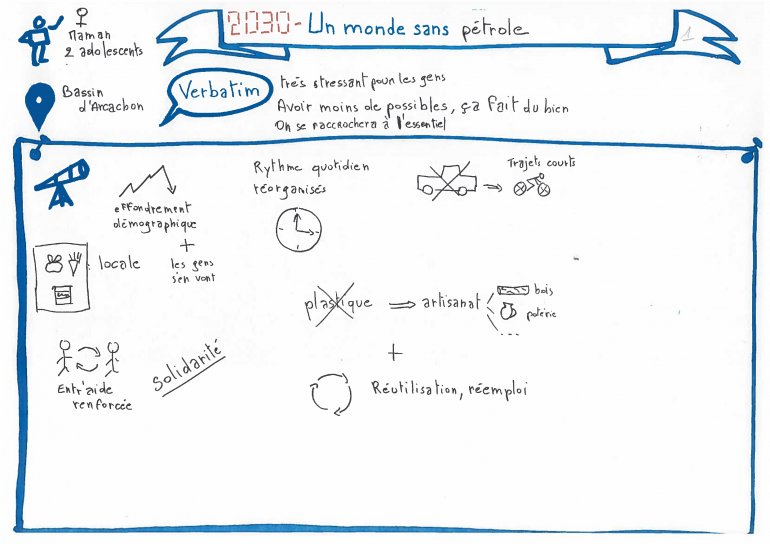 2030 - Un monde sans pétrole
1
Maman
2 adolescents
Bassin
d'Arcachon
Verbatim
très stressant pour les gens
Avoir moins de possibles, ça fait du bien
On se raccrochera à l'essentiel
effondrement
démographique
+
les gens
s'en vont
locale
Rythme quotidien
réorganisés
Trajets courts
plastique
artisanat
bois
poterie
...
+
Réutilisation, réemploi
Entr'aide
renforcée
Solidarité